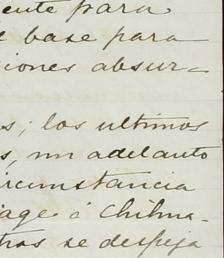 ente para
e base para
ciones absur-
os; los ultimos
s, un adelanto
ircumstancia
iage á Chihua-
tras se despeja